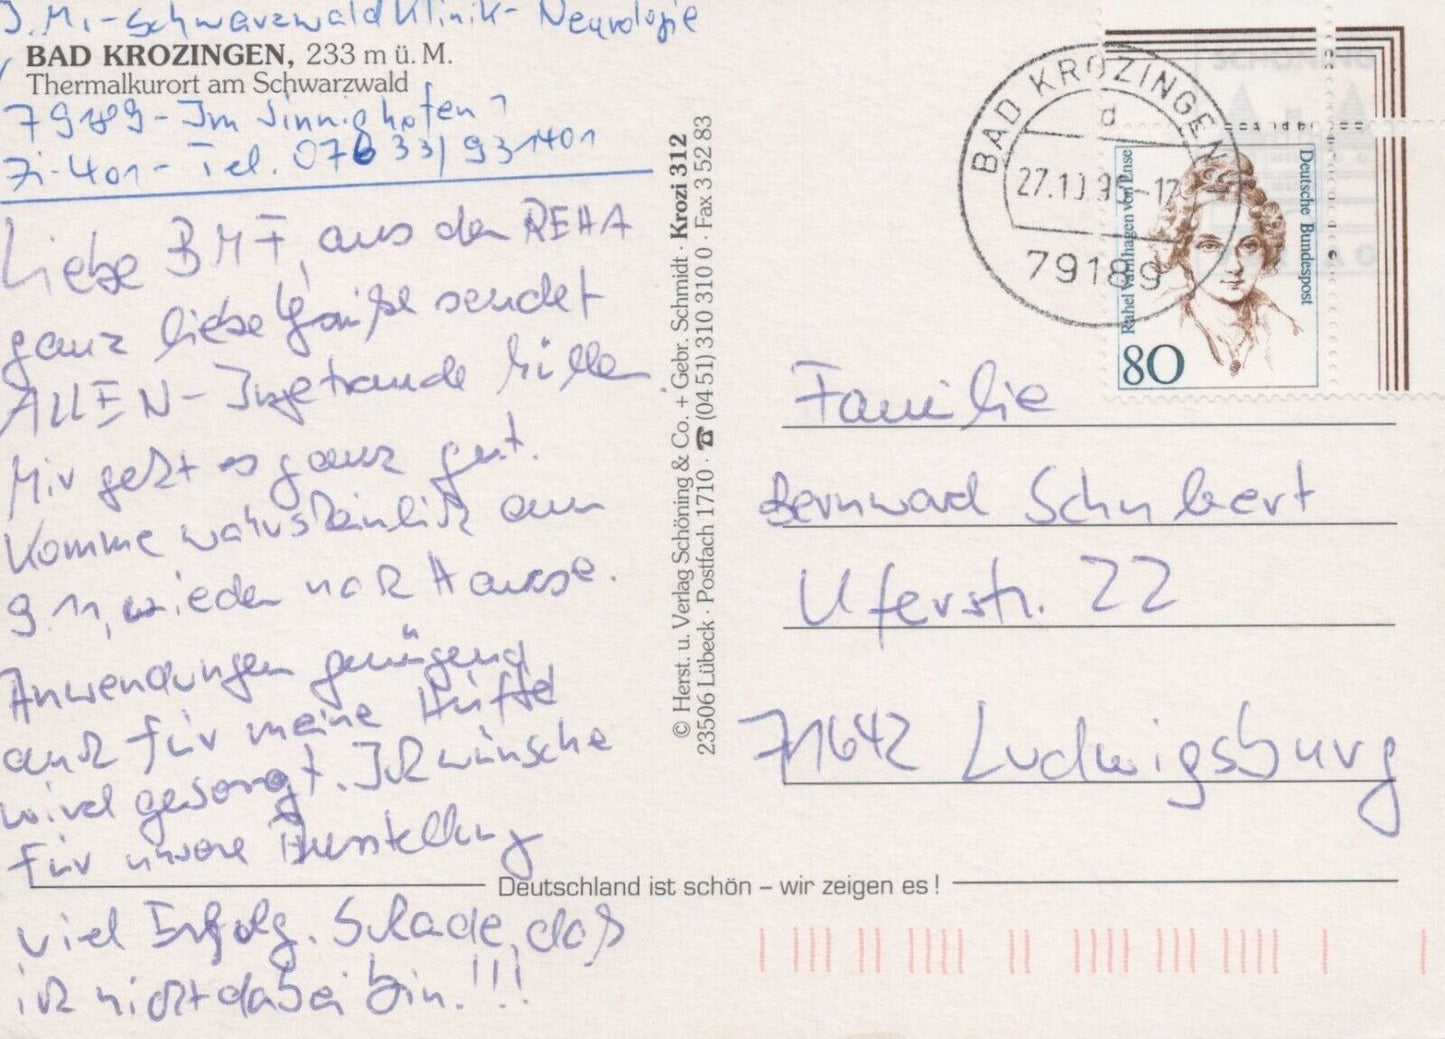 J.M.-Schwarzwald Klinik- Neurologie
BAD KROZINGEN, 233 m ü. M.
Thermalkurort am Schwarzwald
79189-Im Sinnighofen 1
Zi-401-Tel. 07633/931401
Liebe BMF, aus der REHA
ganz liebe Grüße sendet
ALLEN-Ingetraude
Mir geht es ganz gut.
Komme wahrscheinlich am
9.11, wieder nach Hause.
Anwendungen genügend
auch für meine Hüfte
wird gesorgt. Ich wünsche
für unsere Ausstellung
viel Erfolg. Schade, daß
ich nicht dabei bin!!!
Deutschland ist schön – wir zeigen es!
© Herst. u. Verlag Schöning & Co. + Gebr. Schmidt · Krozi 312
23506 Lübeck · Postfach 1710 · ☎ (04 51) 310 310 0 · Fax 3 52 83
BAD KROZINGEN
d
79189
Rahel Varnhagen von Ense
Deutsche Bundespost
80
Familie
Bernward Schubert
Uferstr. 22
71642 Ludwigsburg